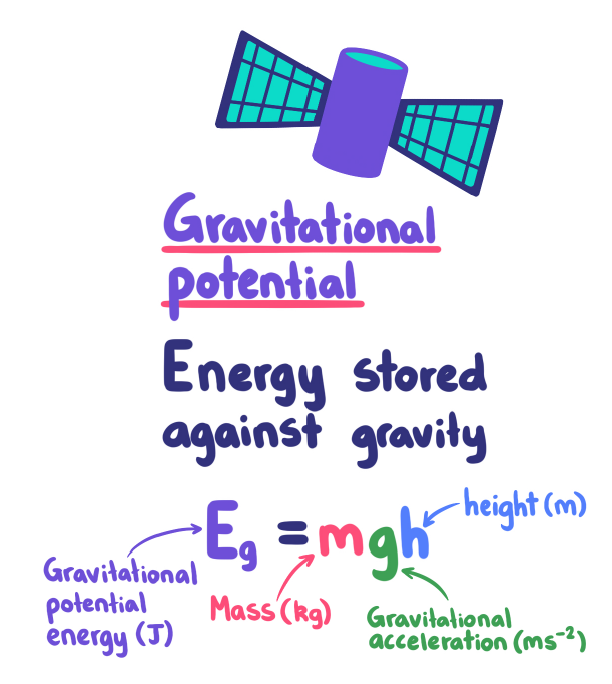 Gravitational
potential
Energy stored
against gravity
E₉ = mgh
height (m)
Gravitational
potential
energy (J)
Mass (kg)
Gravitational
acceleration (ms⁻²)